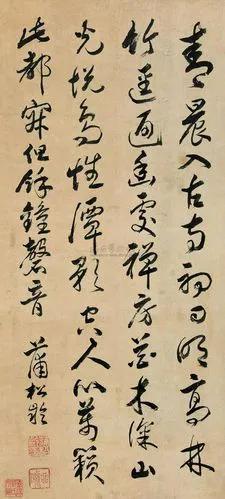 清晨入古寺初日明高林
竹逕通幽處禪房花木深山
光悅鳥性潭影空人心萬籟
此都寂但餘鐘磬音 蒲松齡